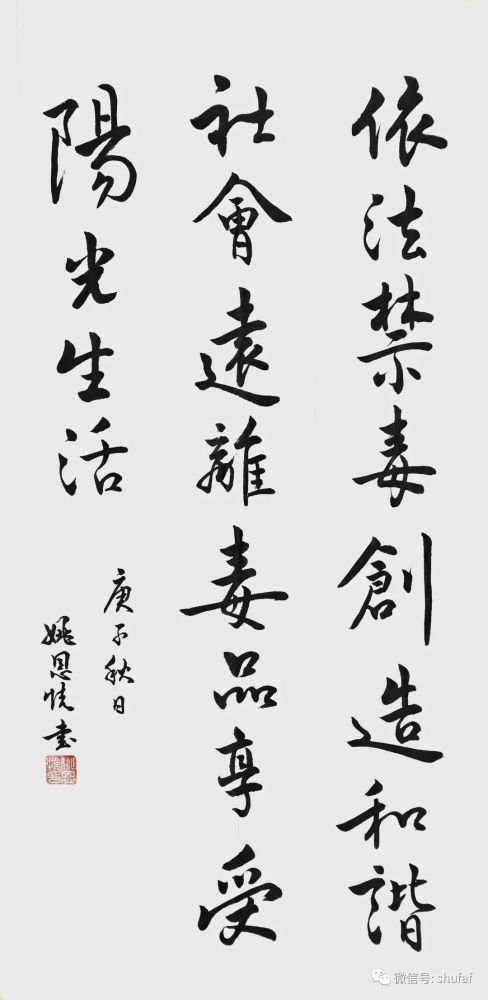 依法禁毒創造和諧
社會遠離毒品享受
陽光生活
庚子秋日
姚恩恍書
微信号: shufaf